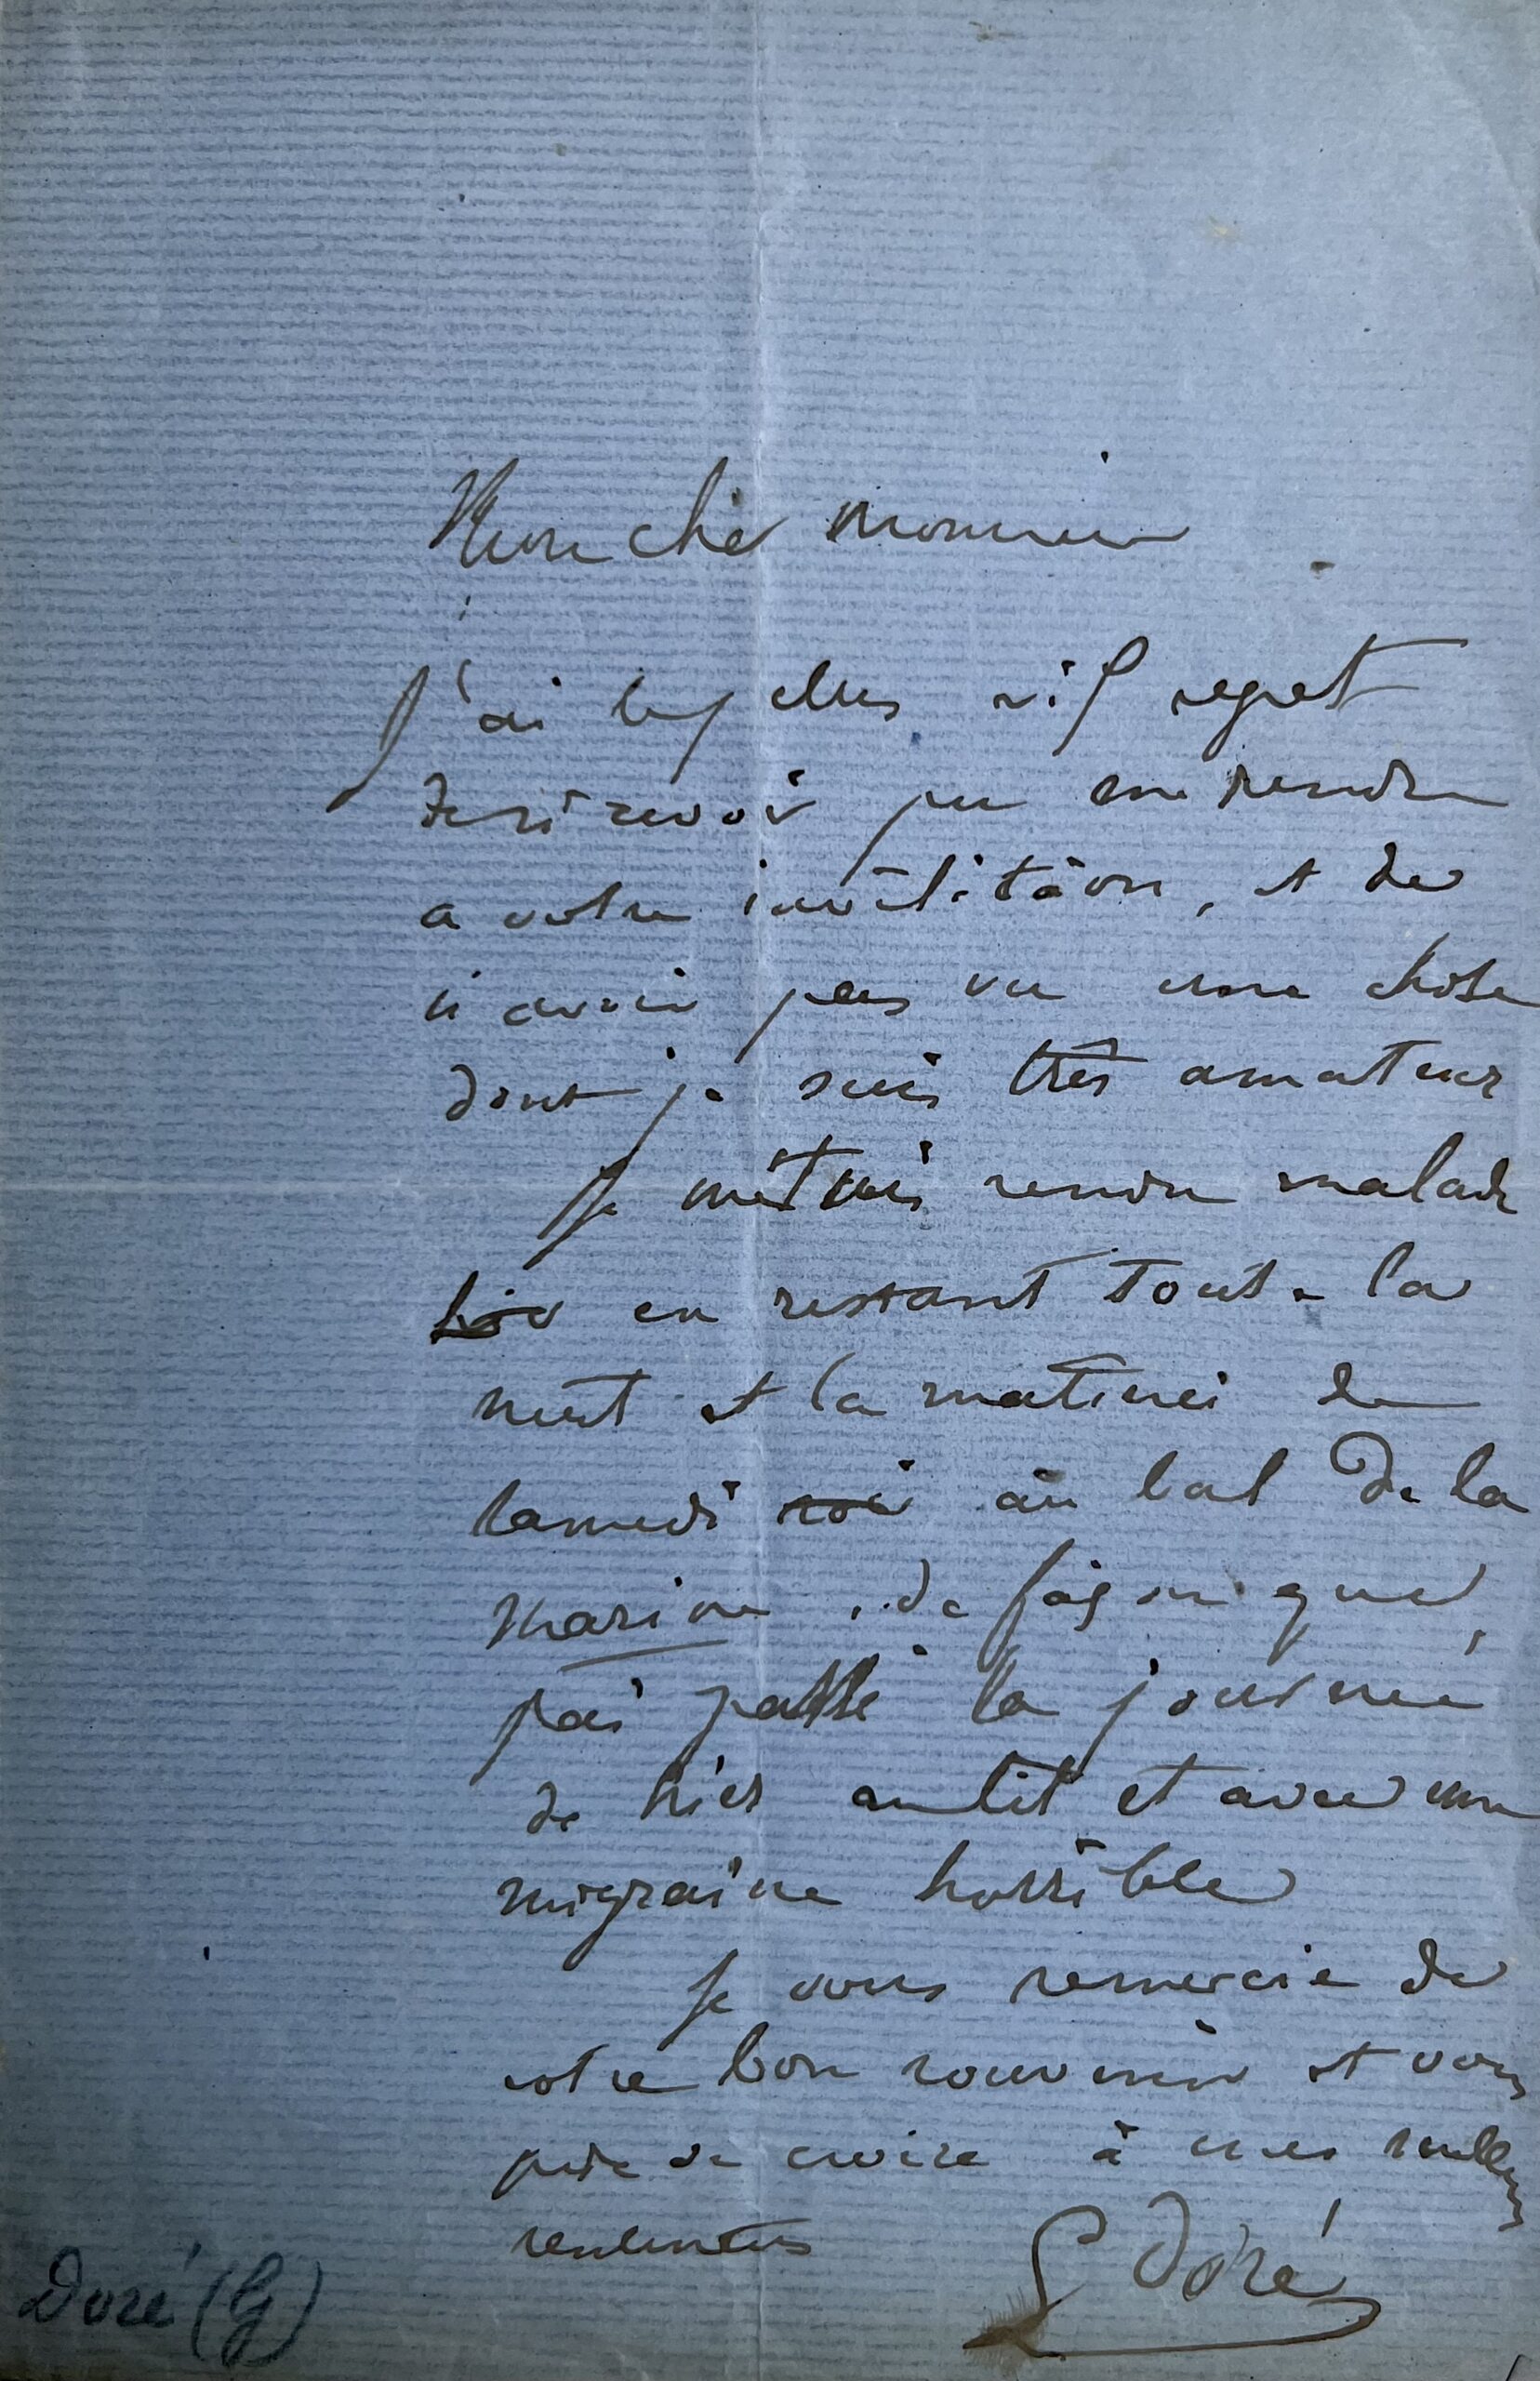 Mon cher monsieur
J'ai le plus vif regret
de n'avoir pu me rendre
a votre invitation, et de
n'avoir pas vu une chose
dont je suis très amateur
Je m'étais rendu malade
hier en restant toute la
nuit et la matinée de
samedi soir au bal de la
marine, de façon que
j'ai passé la journée
de hier au lit et avec une
migraine horrible
Je vous remercie de
votre bon souvenir et vous
prie de croire à mes meilleurs
sentiments
G Doré
Doré (G)